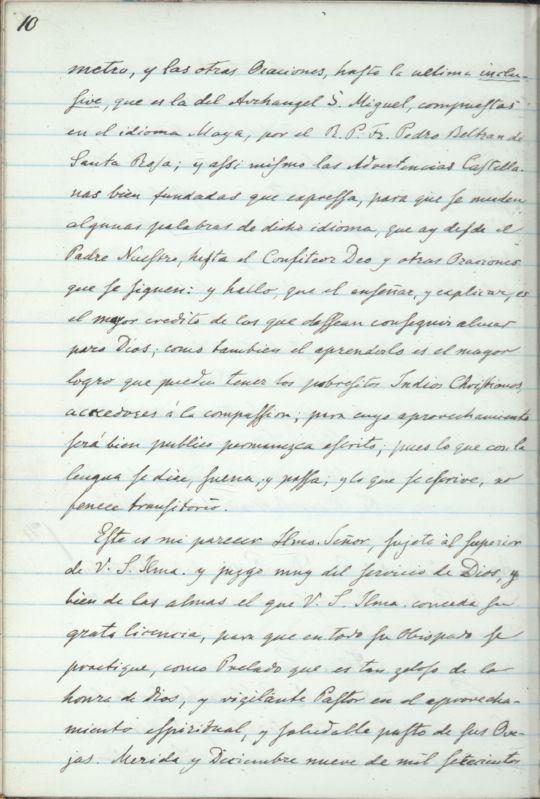 10
metro, y las otras Oraciones, hasta la ultima inclu-
sive, que es la del Archangel S. Miguel, compuestas
en el idioma Maya, por el R. P. Fr. Pedro Beltran de
Santa Rosa; y assi mismo las Advertencias Castella-
nas bien fundadas que expressa, para que se muden
algunas palabras de dicho idioma, que ay desde el
Padre Nuestro, hasta el Confiteor Deo y otras Oraciones
que se siguen: y hallo, que el enseñar, y explicar, es
el mayor credito de los que dessean conseguir almas
para Dios; como tambien el aprenderlo es el mayor
logro que pueden tener los pobresitos Indios Christianos,
acreedores á la compassion; para cuyo aprovechamiento
será bien publico permanezca escrito, pues lo que con la
lengua se dice, suena, y passa, y lo que se escrive, no
fenece transitorio.
Este es mi parecer Ilmo. Señor, sujeto al superior
de V. S. Ilma. y juzgo muy del servicio de Dios, y
bien de las almas el que V. S. Ilma. conceda su
grata licencia, para que en todo su Obispado se
practique, como Prelado que es tan zeloso de la
honra de Dios, y vigilante Pastor en el aprovecha-
miento espiritual, y saludable pasto de sus Ove-
jas. Merida y Diciembre nueve de mil setecientos